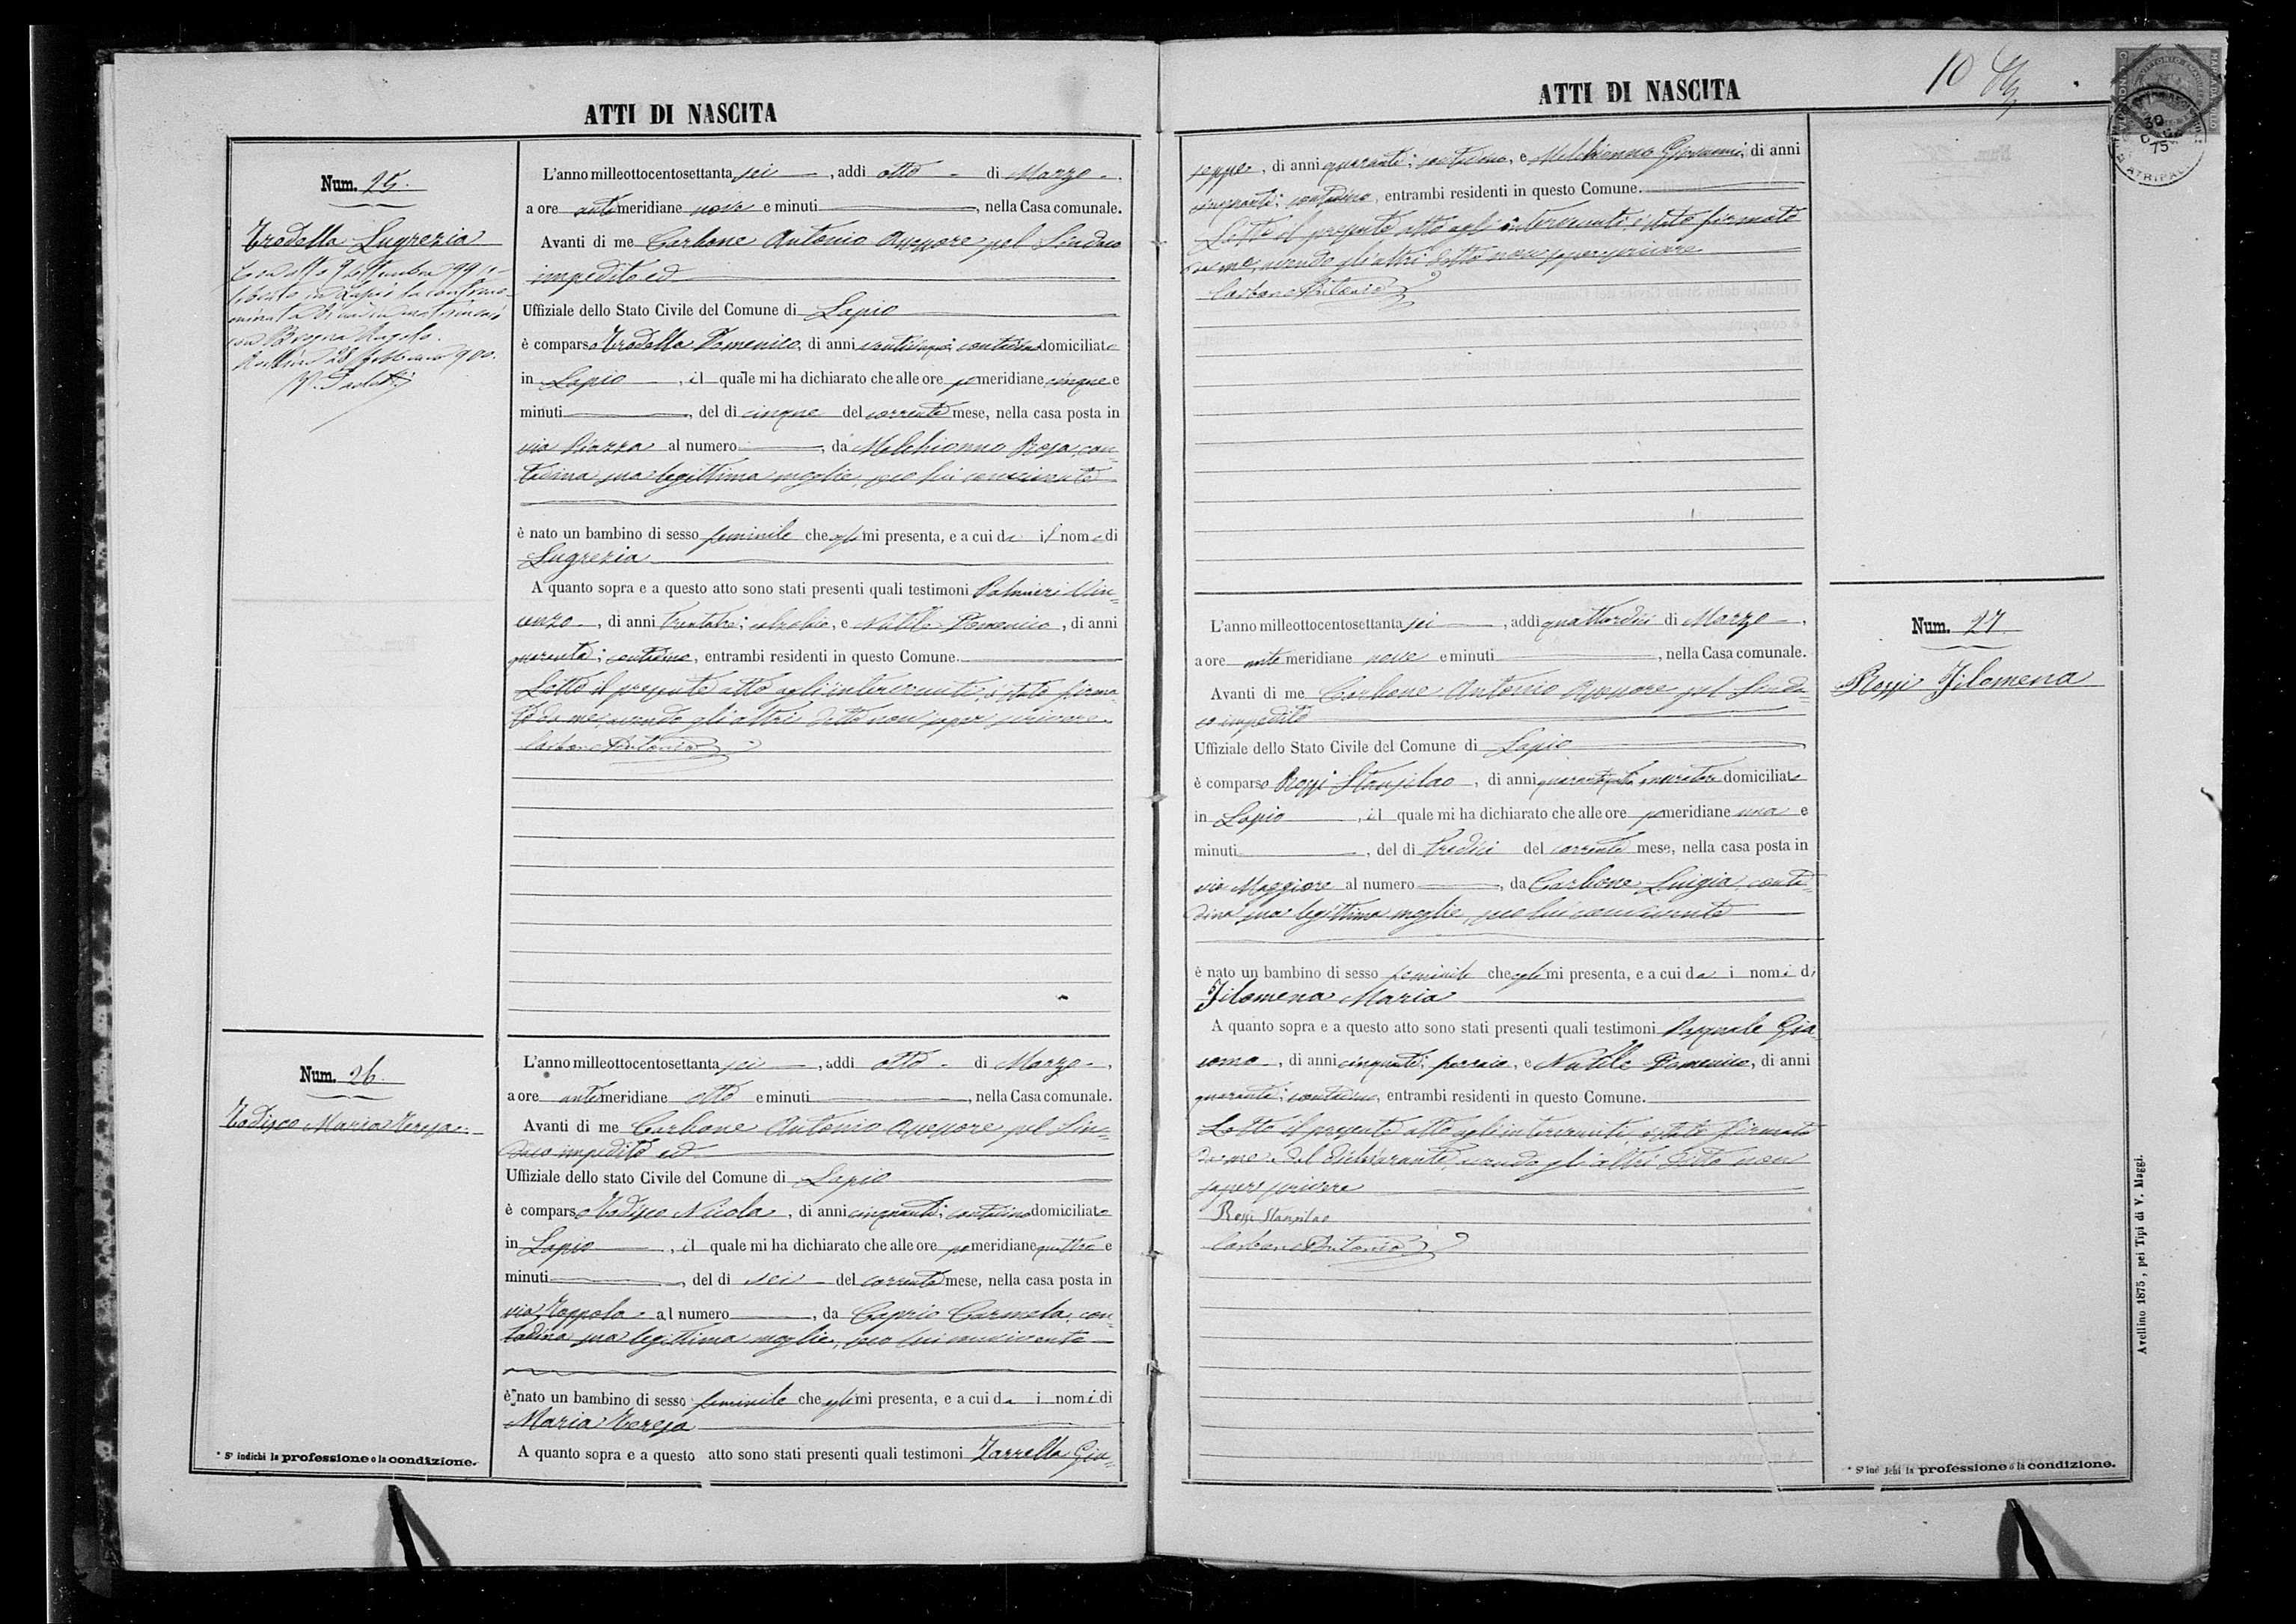 ATTI DI NASCITA
Num. 25.
Trodella Lugrezia
Con atto 9 settembre 99 ce-
lebrato in Lapio la controno-
minata si unì in matrimonio
con Angelo.
28 febbraio 900.
L'anno milleottocentosettanta sei, addi otto di Marzo
a ore antimeridiane nove e minuti , nella Casa comunale.
Avanti di me Carbone Antonio Assessore pel Sindaco
impedito ed
Uffiziale dello Stato Civile del Comune di Lapio
è comparso Trodella Domenico, di anni contadino domiciliato
in Lapio , il quale mi ha dichiarato che alle ore pomeridiane cinque e
minuti , del di cinque del corrente mese, nella casa posta in
via Piazza al numero , da Melchionno Rosa, con-
tadina sua legittima moglie, seco lui convivente
è nato un bambino di sesso feminile che egli mi presenta, e a cui da il nome di
Lugrezia
A quanto sopra e a questo atto sono stati presenti quali testimoni Palmieri Vin-
cenzo , di anni trentatre; calzolaio, e Natile Domenico , di anni
quaranta; contadino, entrambi residenti in questo Comune.
Letto il presente atto agli intervenuti, è stato firma-
to da me, avendo gli altri detto non saper scrivere.
Carbone Antonio
Num. 26.
Todisco Maria Teresa
L'anno milleottocentosettanta sei , addi otto di Marzo ,
a ore antimeridiane otto e minuti , nella Casa comunale.
Avanti di me Carbone Antonio Assessore pel Sin-
daco impedito ed
Uffiziale dello stato Civile del Comune di Lapio
è comparso Todisco Nicola , di anni cinquanta; contadino domiciliato
in Lapio , il quale mi ha dichiarato che alle ore pomeridiane quattro e
minuti , del di sei del corrente mese, nella casa posta in
via Toppola al numero , da Caprio Carmela, con-
tadina sua legittima moglie, seco lui convivente
è nato un bambino di sesso feminile che egli mi presenta, e a cui da i nomi di
Maria Teresa
A quanto sopra e a questo atto sono stati presenti quali testimoni Zarrella Giu-
* S' indichi la professione o la condizione.
ATTI DI NASCITA
10
30
75
ATRIPAL
seppe , di anni quaranta; contadino, e Melchionno Giovanni, di anni
cinquanta; contadino, entrambi residenti in questo Comune.
Letto il presente atto agli intervenuti è stato firmato
da me, avendo gli altri detto non saper scrivere
Carbone Antonio
Num. 27.
Rossi Filomena
L'anno milleottocentosettanta sei , addi quattordici di Marzo ,
a ore antemeridiane nove e minuti , nella Casa comunale.
Avanti di me Carbone Antonio Assessore pel Sinda-
co impedito
Uffiziale dello Stato Civile del Comune di Lapio
è comparso Rossi Stanislao , di anni muratore domiciliato
in Lapio , il quale mi ha dichiarato che alle ore pomeridiane una e
minuti , del di tredici del corrente mese, nella casa posta in
via Maggiore al numero , da Carbone Luigia, conta-
dina sua legittima moglie, seco lui convivente
è nato un bambino di sesso feminile che egli mi presenta, e a cui da i nomi di
Filomena Maria
A quanto sopra e a questo atto sono stati presenti quali testimoni Pasquale Gia-
como , di anni cinquanta; ferraio, e Natile Domenico, di anni
quaranta; contadino, entrambi residenti in questo Comune.
Letto il presente atto agli intervenuti, è stato firmato
da me e dal dichiarante, avendo gli altri detto non
sapere scrivere
Rossi Stanislao
Carbone Antonio
* S' indichi la professione o la condizione.
Avellino 1875, pei Tipi di V. Maggi.